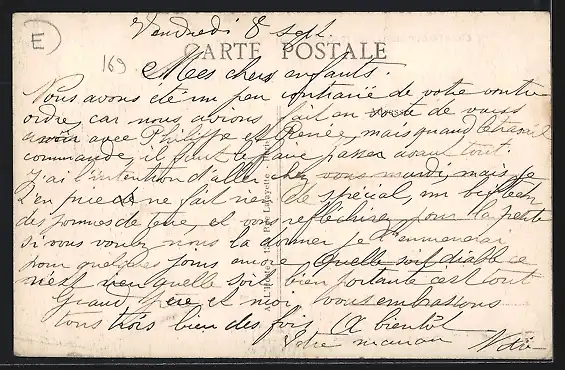 E
Vendredi 8 Sept
CARTE POSTALE
169
Mes chers enfants.
Nous avons été un peu contrarié de votre contre
ordre, car nous avions fait en sorte de vous
avoir avec Philippe et Renée, mais quand le travail
commande, il faut le faire passer avant tout.
J'ai l'intention d'aller chez vous mardi, mais je
t'en prie ne fait rien de spécial, un bifteck
des pommes de terre, et vous réfléchirez pour la petite
si vous voulez nous la donner je l'emmenerai
pour quelques jours encore, quelle soit diable ce
n'est rien quelle soit bien portante c'est tout
Grand père et moi vous embrassons
tous trois bien des fois. A bientôt
Votre maman